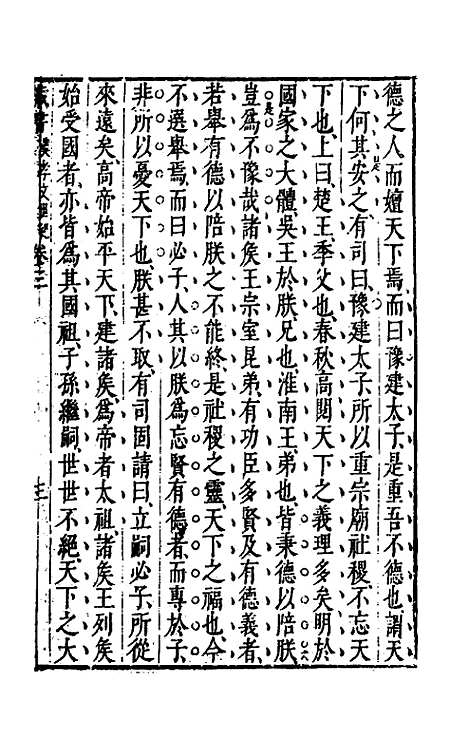 德之人而嬗天下焉而曰豫建太子是重吾不德也謂天
下何其安之有司曰豫建太子所以重宗廟社稷不忘天
下也上曰楚王季父也春秋高閱天下之義理多矣明於
國家之大體吳王於朕兄也淮南王弟也皆秉德以陪朕
豈爲不豫哉諸矦王宗室昆弟有功臣多賢及有德義者
若舉有德以陪朕之不能終是社稷之靈天下之福也今
不選舉焉而曰必子人其以朕爲忘賢有德者而專於子
非所以憂天下也朕甚不取有司固請曰立嗣必子所從
來遠矣高帝始平天下建諸矦爲帝者太祖諸矦王列矦
始受國者亦皆爲其國祖子孫繼嗣世世不絕天下之大